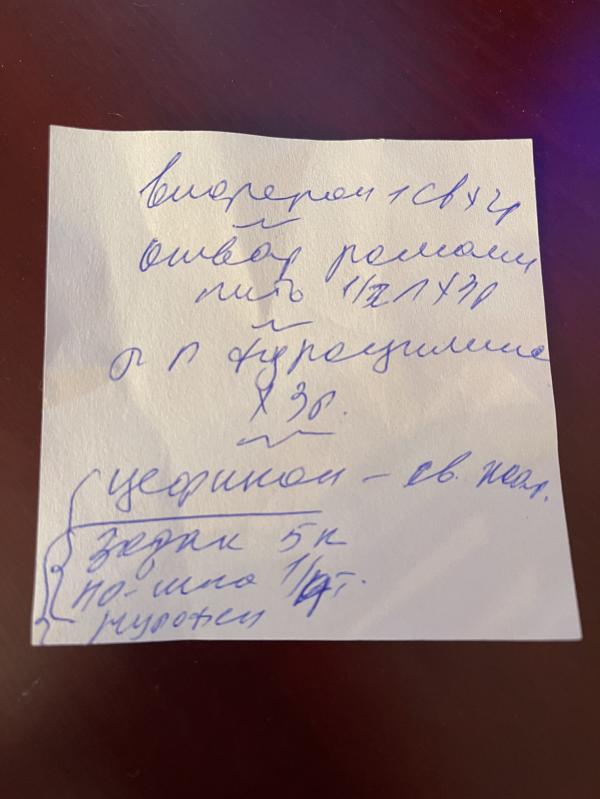 Виферон 1 св х 2р
Отвар ромашки
пить 1/2 л х 3р
р-р фурацилина
х 3р.
Цефикон – св. жар.
Зодак 5 к
но-шпа 1/ т.
нурофен